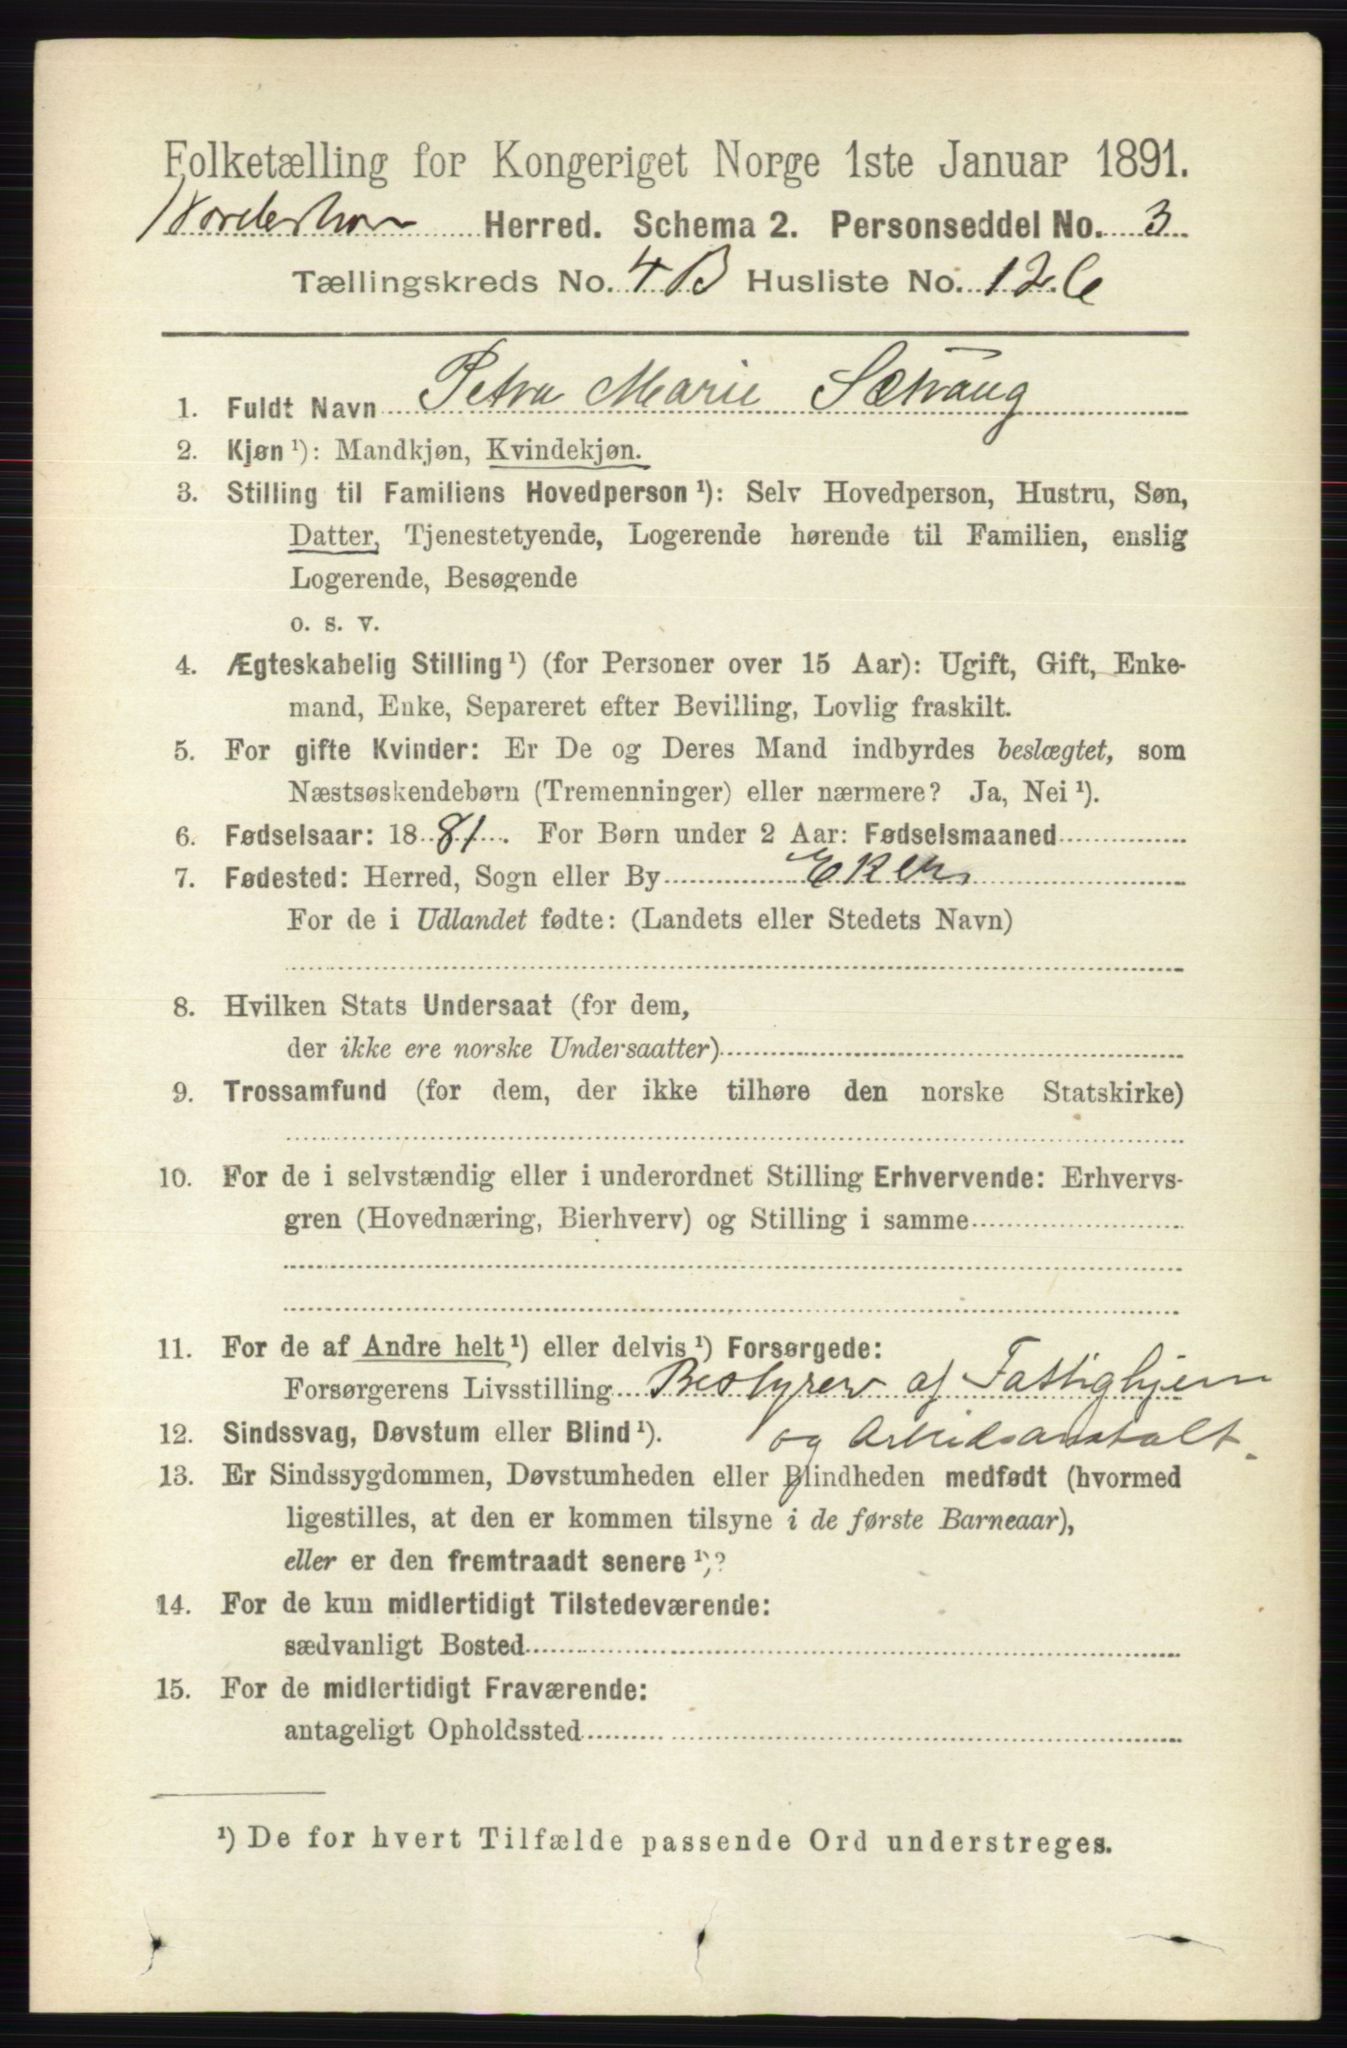 Folketælling for Kongeriget Norge 1ste Januar 1891.
Norderhov Herred. Schema 2. Personseddel No. 3
Tællingskreds No. 4B Husliste No. 126
1. Fuldt Navn Petra Marie Sætrang
2. Kjøn ¹): Mandkjøn, Kvindekjøn.
3. Stilling til Familiens Hovedperson ¹): Selv Hovedperson, Hustru, Søn,
Datter, Tjenestetyende, Logerende hørende til Familien, enslig
Logerende, Besøgende
o. s. v.
4. Ægteskabelig Stilling ¹) (for Personer over 15 Aar): Ugift, Gift, Enke-
mand, Enke, Separeret efter Bevilling, Lovlig fraskilt.
5. For gifte Kvinder: Er De og Deres Mand indbyrdes beslægtet, som
Næstsøskendebørn (Tremenninger) eller nærmere? Ja, Nei ¹).
6. Fødselsaar: 1881. For Børn under 2 Aar: Fødselsmaaned
7. Fødested: Herred, Sogn eller By Eker
For de i Udlandet fødte: (Landets eller Stedets Navn)
8. Hvilken Stats Undersaat (for dem,
der ikke ere norske Undersaatter)
9. Trossamfund (for dem, der ikke tilhøre den norske Statskirke)
10. For de i selvstændig eller i underordnet Stilling Erhvervende: Erhvervs-
gren (Hovednæring, Bierhverv) og Stilling i samme
11. For de af Andre helt ¹) eller delvis ¹) Forsørgede:
Forsørgerens Livsstilling Bestyrer af Fattighjem
12. Sindssvag, Døvstum eller Blind ¹). og Arbeidsanstalt.
13. Er Sindssygdommen, Døvstumheden eller Blindheden medfødt (hvormed
ligestilles, at den er kommen tilsyne i de første Barneaar),
eller er den fremtraadt senere ¹)?
14. For de kun midlertidigt Tilstedeværende:
sædvanligt Bosted
15. For de midlertidigt Fraværende:
antageligt Opholdssted
¹) De for hvert Tilfælde passende Ord understreges.